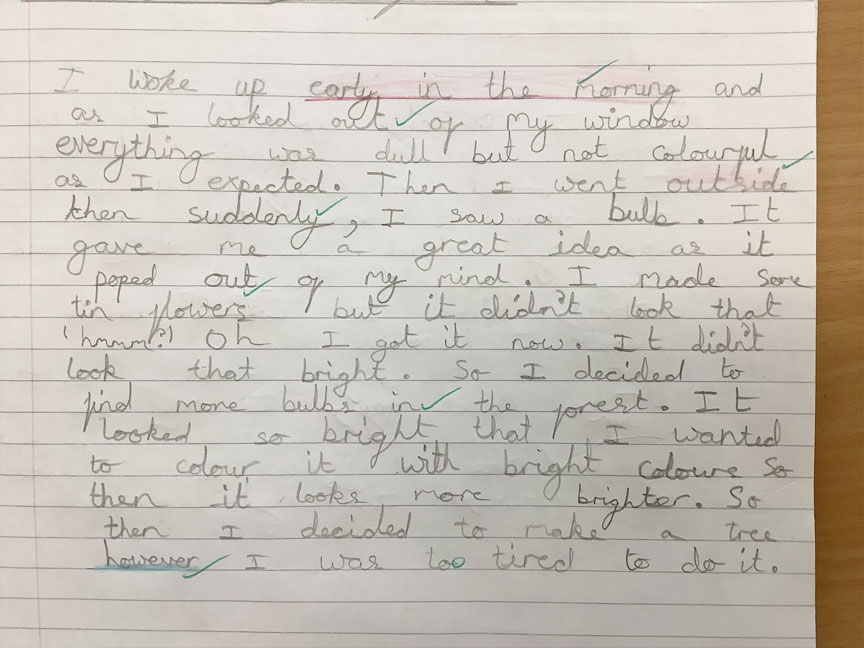 I woke up early in the morning and
as I looked out of my window
everything was dull but not colourful
as I expected. Then I went outside
then suddenly, I saw a bulb. It
gave me a great idea as it
poped out of my mind. I made some
tin flowers but it didn't look that
(hmmm?) Oh I got it now. It didn't
look that bright. So I decided to
find more bulbs in the forest. It
looked so bright that I wanted
to colour it with bright colours so
then it looks more brighter. So
then I decided to make a tree
however I was too tired to do it.